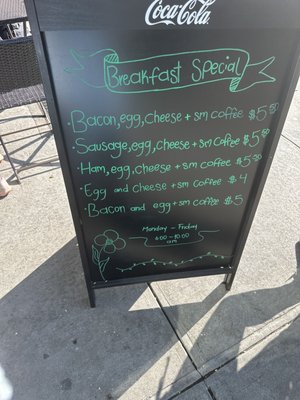 Coca-Cola
Breakfast Special
· Bacon, egg, cheese + sm coffee $5.50
· Sausage, egg, cheese + sm coffee $5.50
· Ham, egg, cheese + sm coffee $5.50
· Egg and cheese + sm coffee $4
· Bacon and egg + sm coffee $5
Monday - Friday
6:00 - 10:00
am